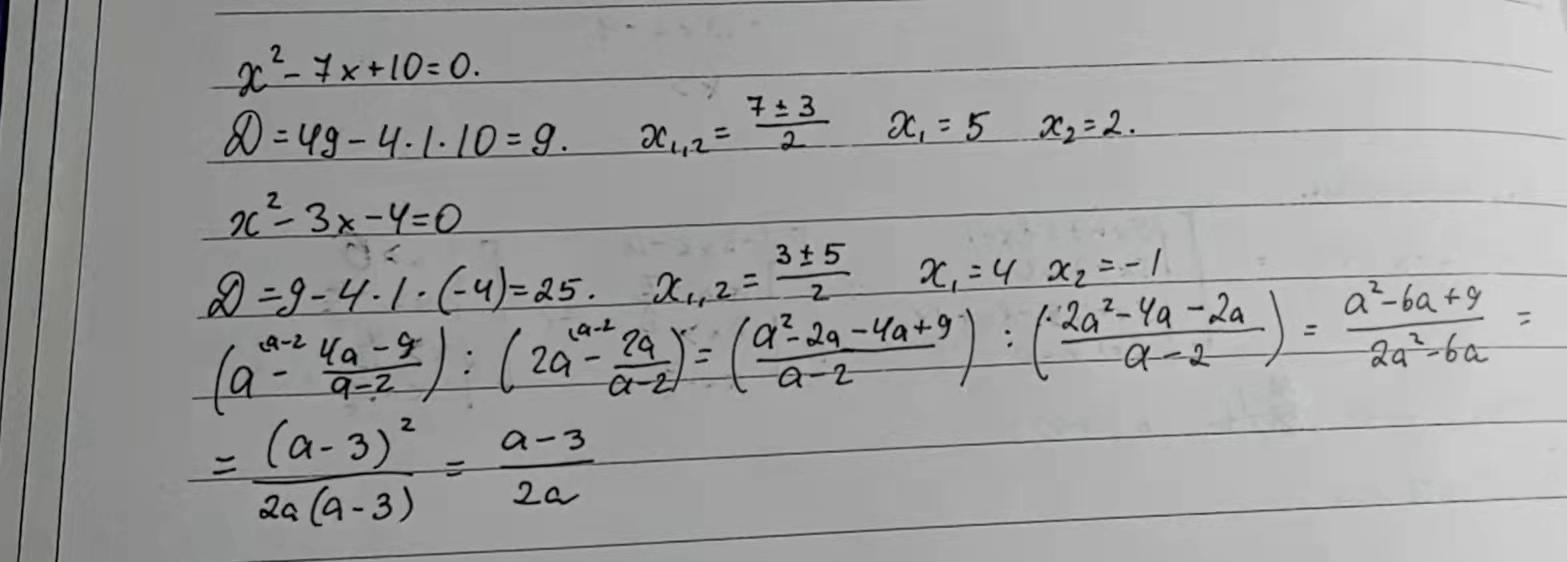 x² - 7x + 10 = 0.
D = 49 - 4 · 1 · 10 = 9. x₁,₂ = (7 ± 3)/2 x₁ = 5 x₂ = 2.
x² - 3x - 4 = 0
D = 9 - 4 · 1 · (-4) = 25. x₁,₂ = (3 ± 5)/2 x₁ = 4 x₂ = -1
(a^(a-2) - (4a - 9)/(a - 2)) : (2a^(a-2) - 2a/(a - 2)) = ((a² - 2a - 4a + 9)/(a - 2)) : ((2a² - 4a - 2a)/(a - 2)) = (a² - 6a + 9)/(2a² - 6a) =
= (a - 3)²/(2a(a - 3)) = (a - 3)/(2a)